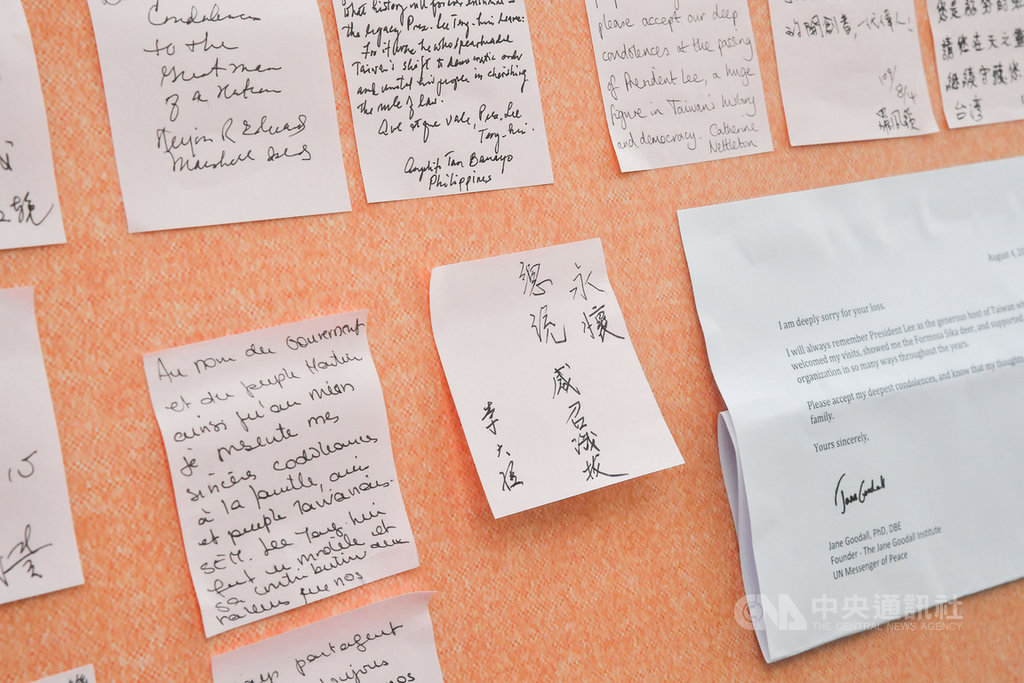 Condolences
to the
Great man
of a Nation
Neijon R Edward
Marshall Isls
what history will for
the legacy Pres. Lee Teng-hui leave:
For it were he who
Taiwan's shift to democratic order
and united his people in cherishing
the rule of law.
Ave atque vale, Pres. Lee
Teng-hui.
Angelito Tan Banayo
Philippines
please accept our deep
condolences at the passing
of President Lee, a huge
figure in Taiwan's history
and democracy. Catherine
Nettleton
的開創者,一代偉人!
109/
8/4
請您在天之靈
繼續守護您
台湾
Au nom du Gouvernement
et du peuple Haïtien
ainsi qu'au mien
je présente mes
sincères condoléances
à la famille, ainsi
et peuple Taiwanais.
SEM. Lee Teng-hui
fut un modèle et
sa contribution aux
que nos
partagent
toujours
nos
永懷
總統
李大維
August 4, 20
I am deeply sorry for your loss.
I will always remember President Lee as the generous host of Taiwan wh
welcomed my visits, showed me the Formosa Sika deer, and supported
organization in so many ways throughout the years.
Please accept my deepest condolences, and know that my thoughts
family.
Yours sincerely,
Jane Goodall
Jane Goodall, PhD, DBE
Founder - The Jane Goodall Institute
UN Messenger of Peace
CNA 中央通訊社
THE CENTRAL NEWS AGENCY